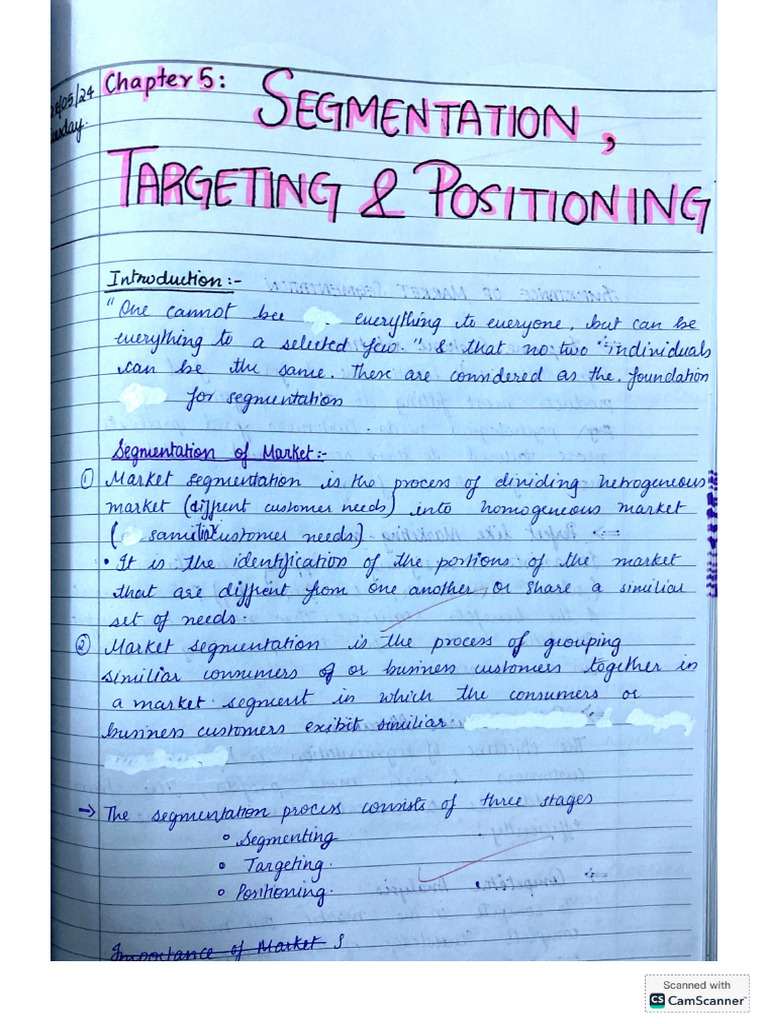 Chapter 5: SEGMENTATION,
/05/24
TARGETING & POSITIONING
Introduction:-
"One cannot bee everything to everyone, but can be
everything to a selected few." & that no two individuals
can be the same. These are considered as the foundation
for segmentation
Segmentation of Market:-
① Market segmentation is the process of dividing hetrogeneous
market (diffrent customer needs) into homogeneous market
( samiliar customer needs.)
• It is the identification of the portions of the market
that are diffrent from one another, or share a similiar
set of needs.
② Market segmentation is the process of grouping
similiar consumers or business customers together in
a market segment in which the consumers or
business customers exibit similiar
→ The segmentation process consists of three stages
◦ Segmenting
◦ Targeting.
◦ Positioning.
Importance of Market S
Scanned with
CS CamScanner